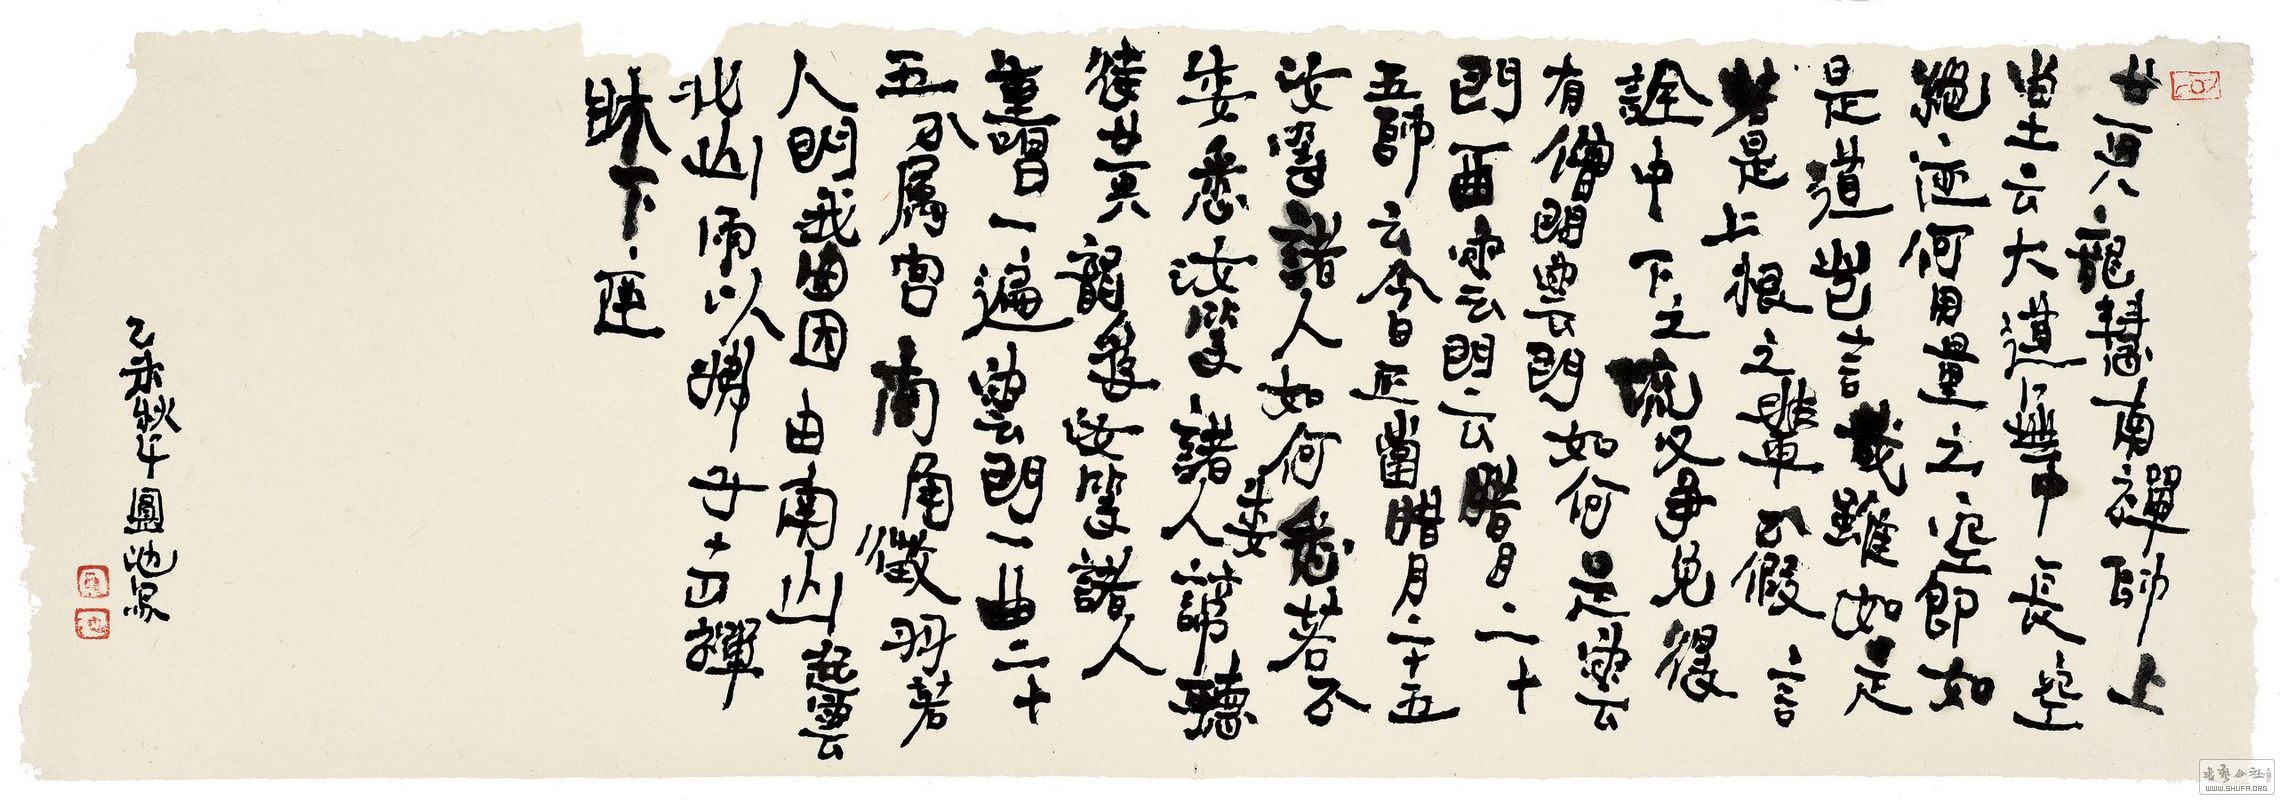 黃龍慧南禪師上
堂云大道無中長空
絕迹何用量之空即如
是道豈言哉雖如是
若是上根之輩不假言
詮中下之流又爭免得
有僧問雲門如何是雲
門曲雲門云臘月二十
五師云今日正當臘月二十五
汝等諸人如何委悉若不
委悉汝等諸人諦聽
待黃龍為汝等諸人
重唱一遍雲門一曲二十
五不属宮商角徵羽若
人問我曲因由南山起雲
北山雨以拂子击禪
床下座
乙未秋午圓池寫
書藝公社
WWW.SHUFA.ORG